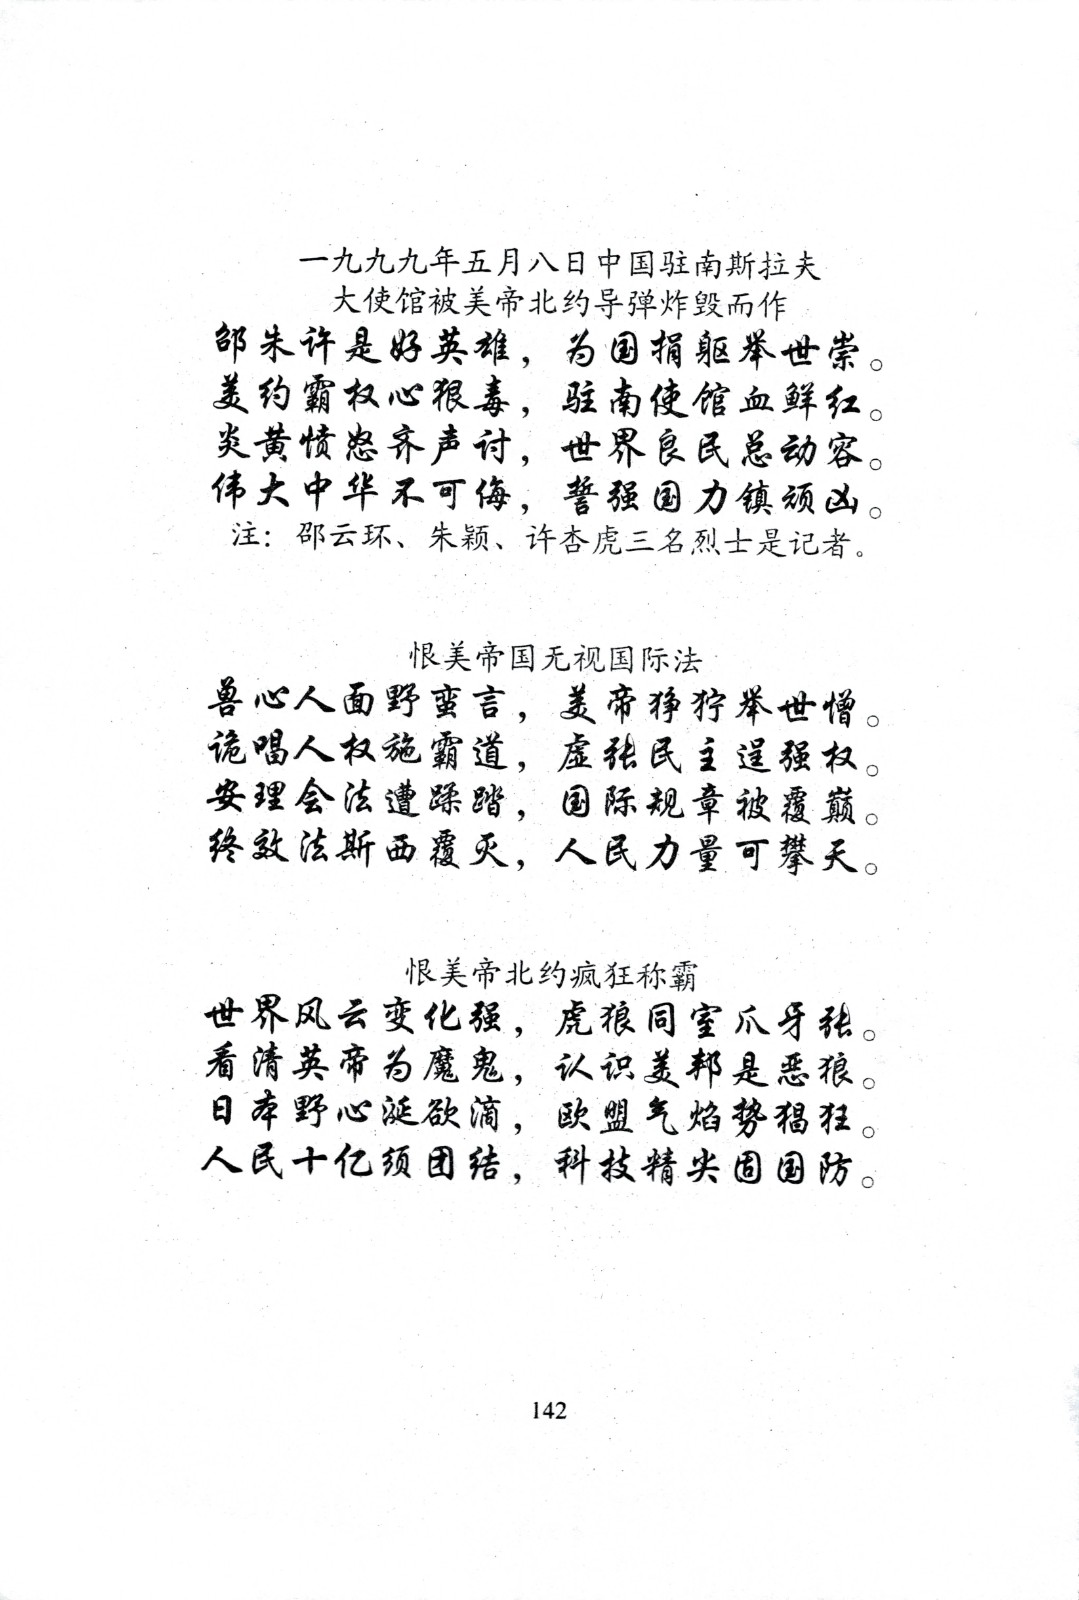 一九九九年五月八日中国驻南斯拉夫
大使馆被美帝北约导弹炸毁而作
邵朱许是好英雄，为国捐躯举世崇。
美约霸权心狠毒，驻南使馆血鲜红。
炎黄愤怒齐声讨，世界良民总动容。
伟大中华不可侮，誓强国力镇顽凶。
注：邵云环、朱颖、许杏虎三名烈士是记者。
恨美帝国无视国际法
兽心人面野蛮言，美帝狰狞举世憎。
诡唱人权施霸道，虚张民主逞强权。
安理会法遭蹂踏，国际规章被覆巅。
终效法斯西覆灭，人民力量可攀天。
恨美帝北约疯狂称霸
世界风云变化强，虎狼同室爪牙张。
看清英帝为魔鬼，认识美邦是恶狼。
日本野心涎欲滴，欧盟气焰势猖狂。
人民十亿须团结，科技精尖固国防。
142